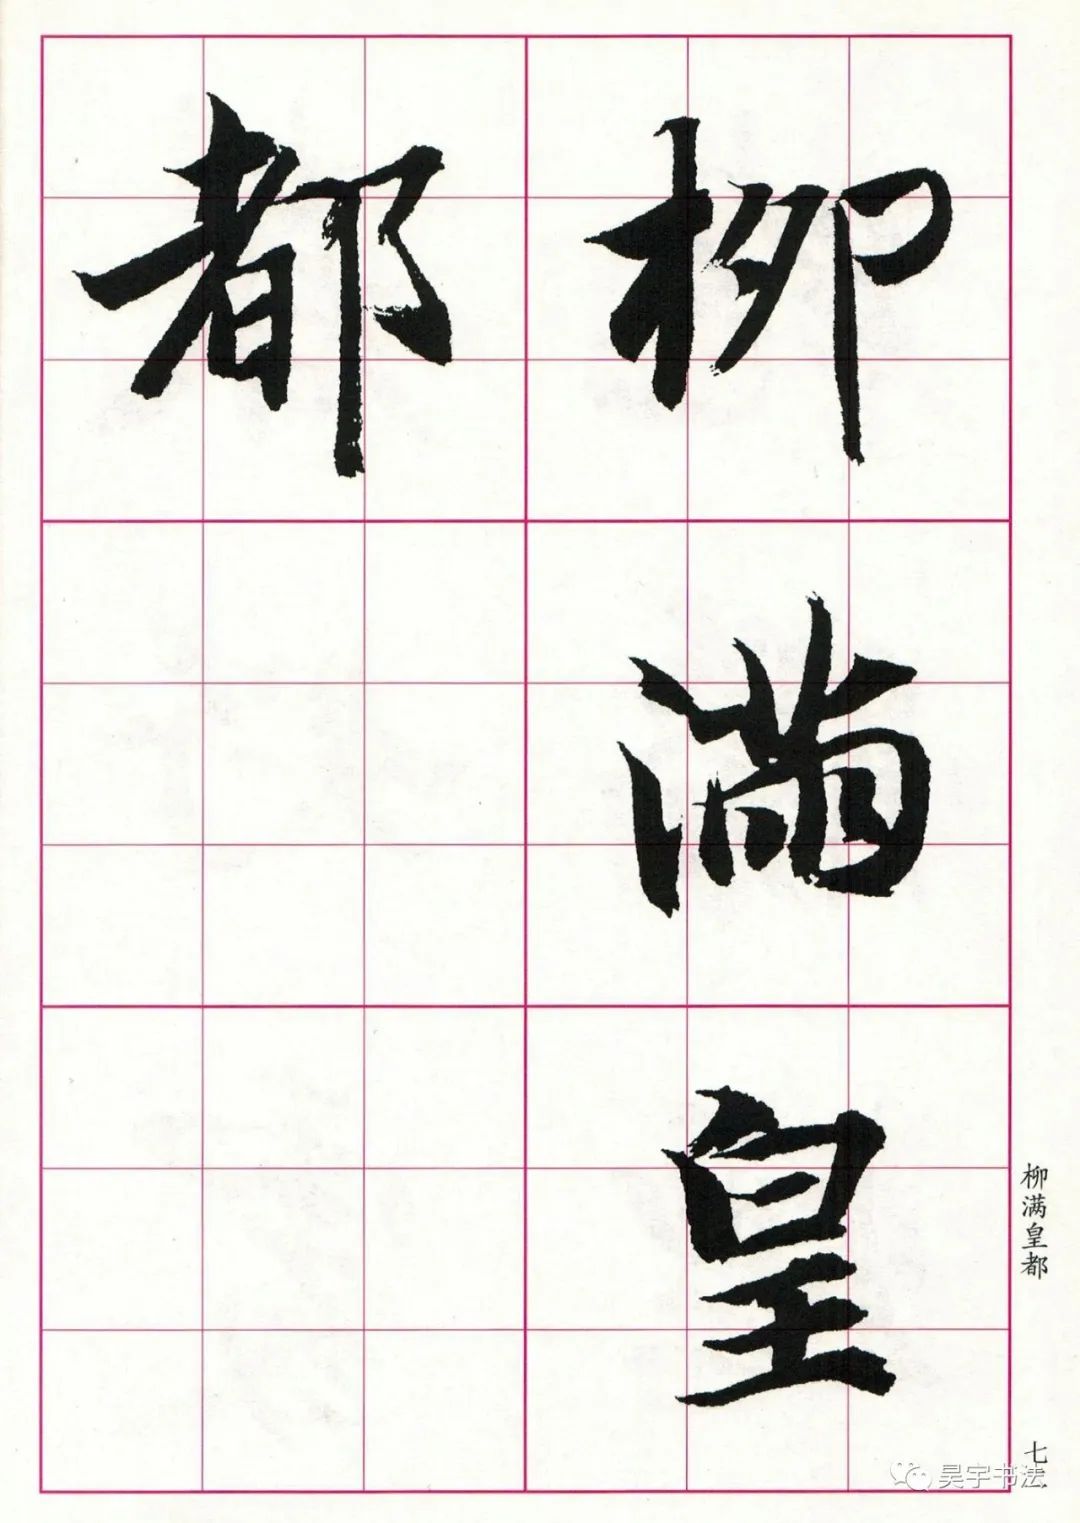 柳满皇
都
柳满皇都
七
昊宇书法